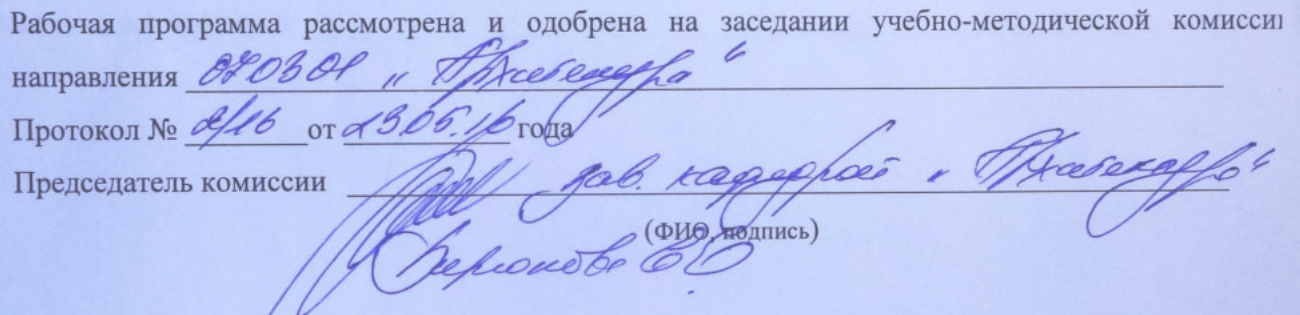 Рабочая программа рассмотрена и одобрена на заседании учебно-методической комиссии
направления 070301 „Архитектура“
Протокол № 2/16 от 23.05.16 года
Председатель комиссии зав. кафедрой „Архитектура“
(ФИО, подпись)